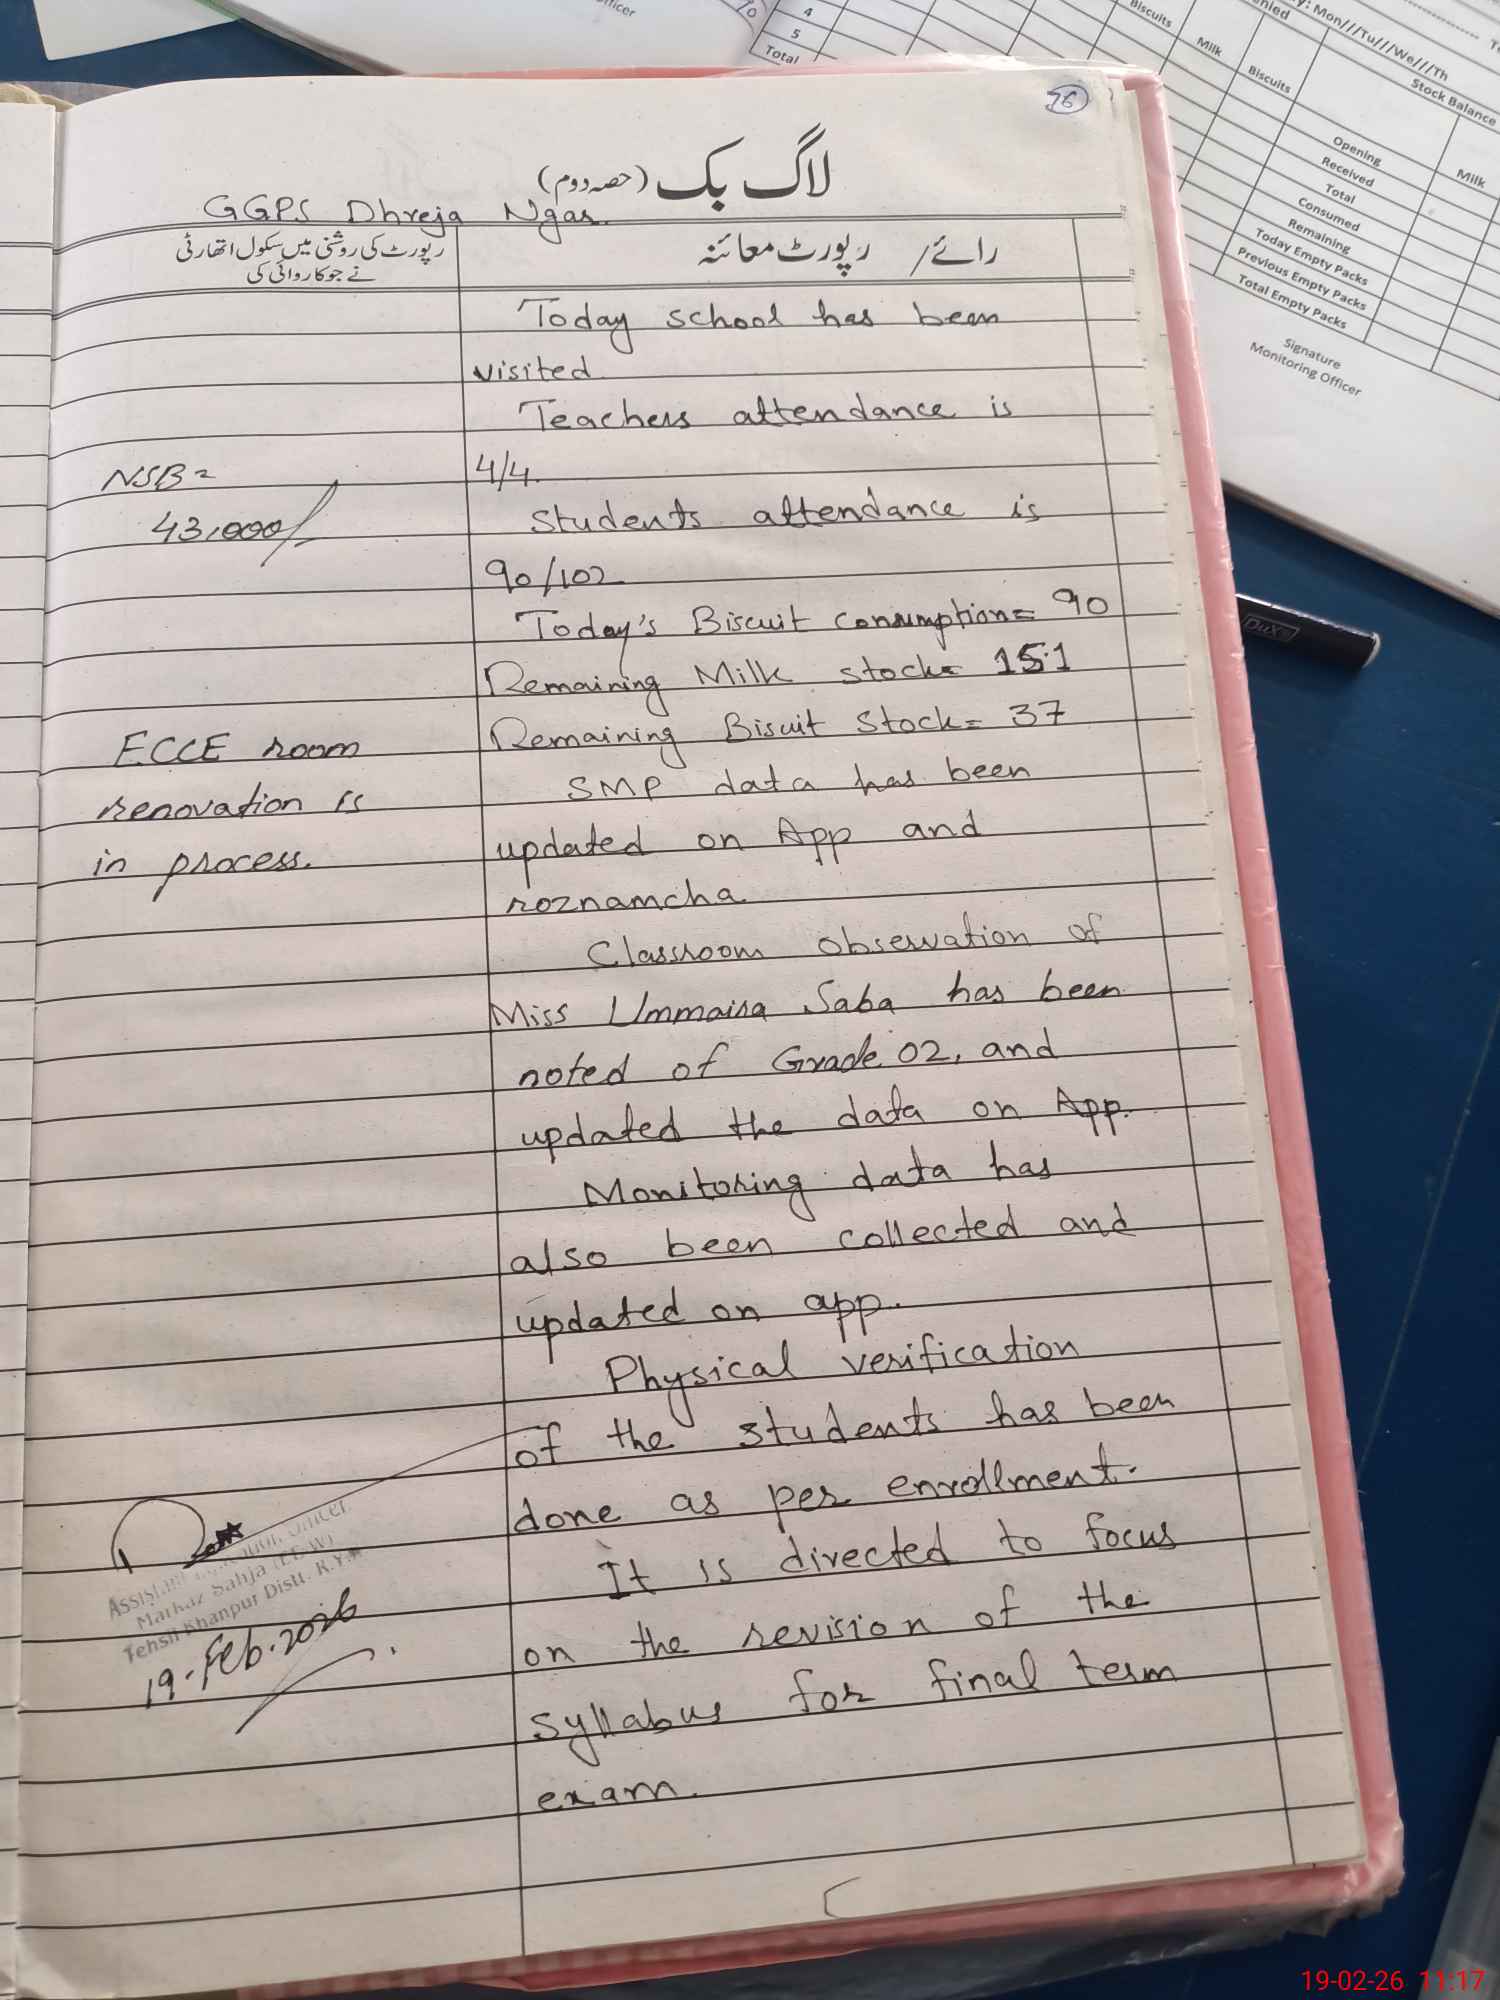 76
لاگ بک (حصہ دوم)
GGPS Dhreja Ngar.
رائے / رپورٹ معائنہ
رپورٹ کی روشنی میں سکول اتھارٹی
نے جو کاروائی کی
Today school has been
visited
Teachers attendance is
4/4.
Students attendance is
90/102
Today's Biscuit consumption= 90
Remaining Milk stock= 151
Remaining Biscuit Stock= 37
SMP data has been
updated on App and
roznamcha
Classroom observation of
Miss Ummaira Saba has been
noted of Grade 02, and
updated the data on App.
Monitoring data has
also been collected and
updated on app.
Physical verification
of the students has been
done as per enrollment.
It is directed to focus
on the revision of the
syllabus for final term
exam.
NSB=
43,000/
ECCE room
renovation is
in process.
Officer
Markaz Sahja
Tehsil Khanpur Distt. R.Y.K
19-Feb-2026
4
5
Total
Biscuits
Milk
Biscuits
Mon///Tu///We///Th
Stock Balance
Milk
Opening
Received
Total
Consumed
Remaining
Today Empty Packs
Previous Empty Packs
Total Empty Packs
Signature
Monitoring Officer
DUX
19-02-26 11:17